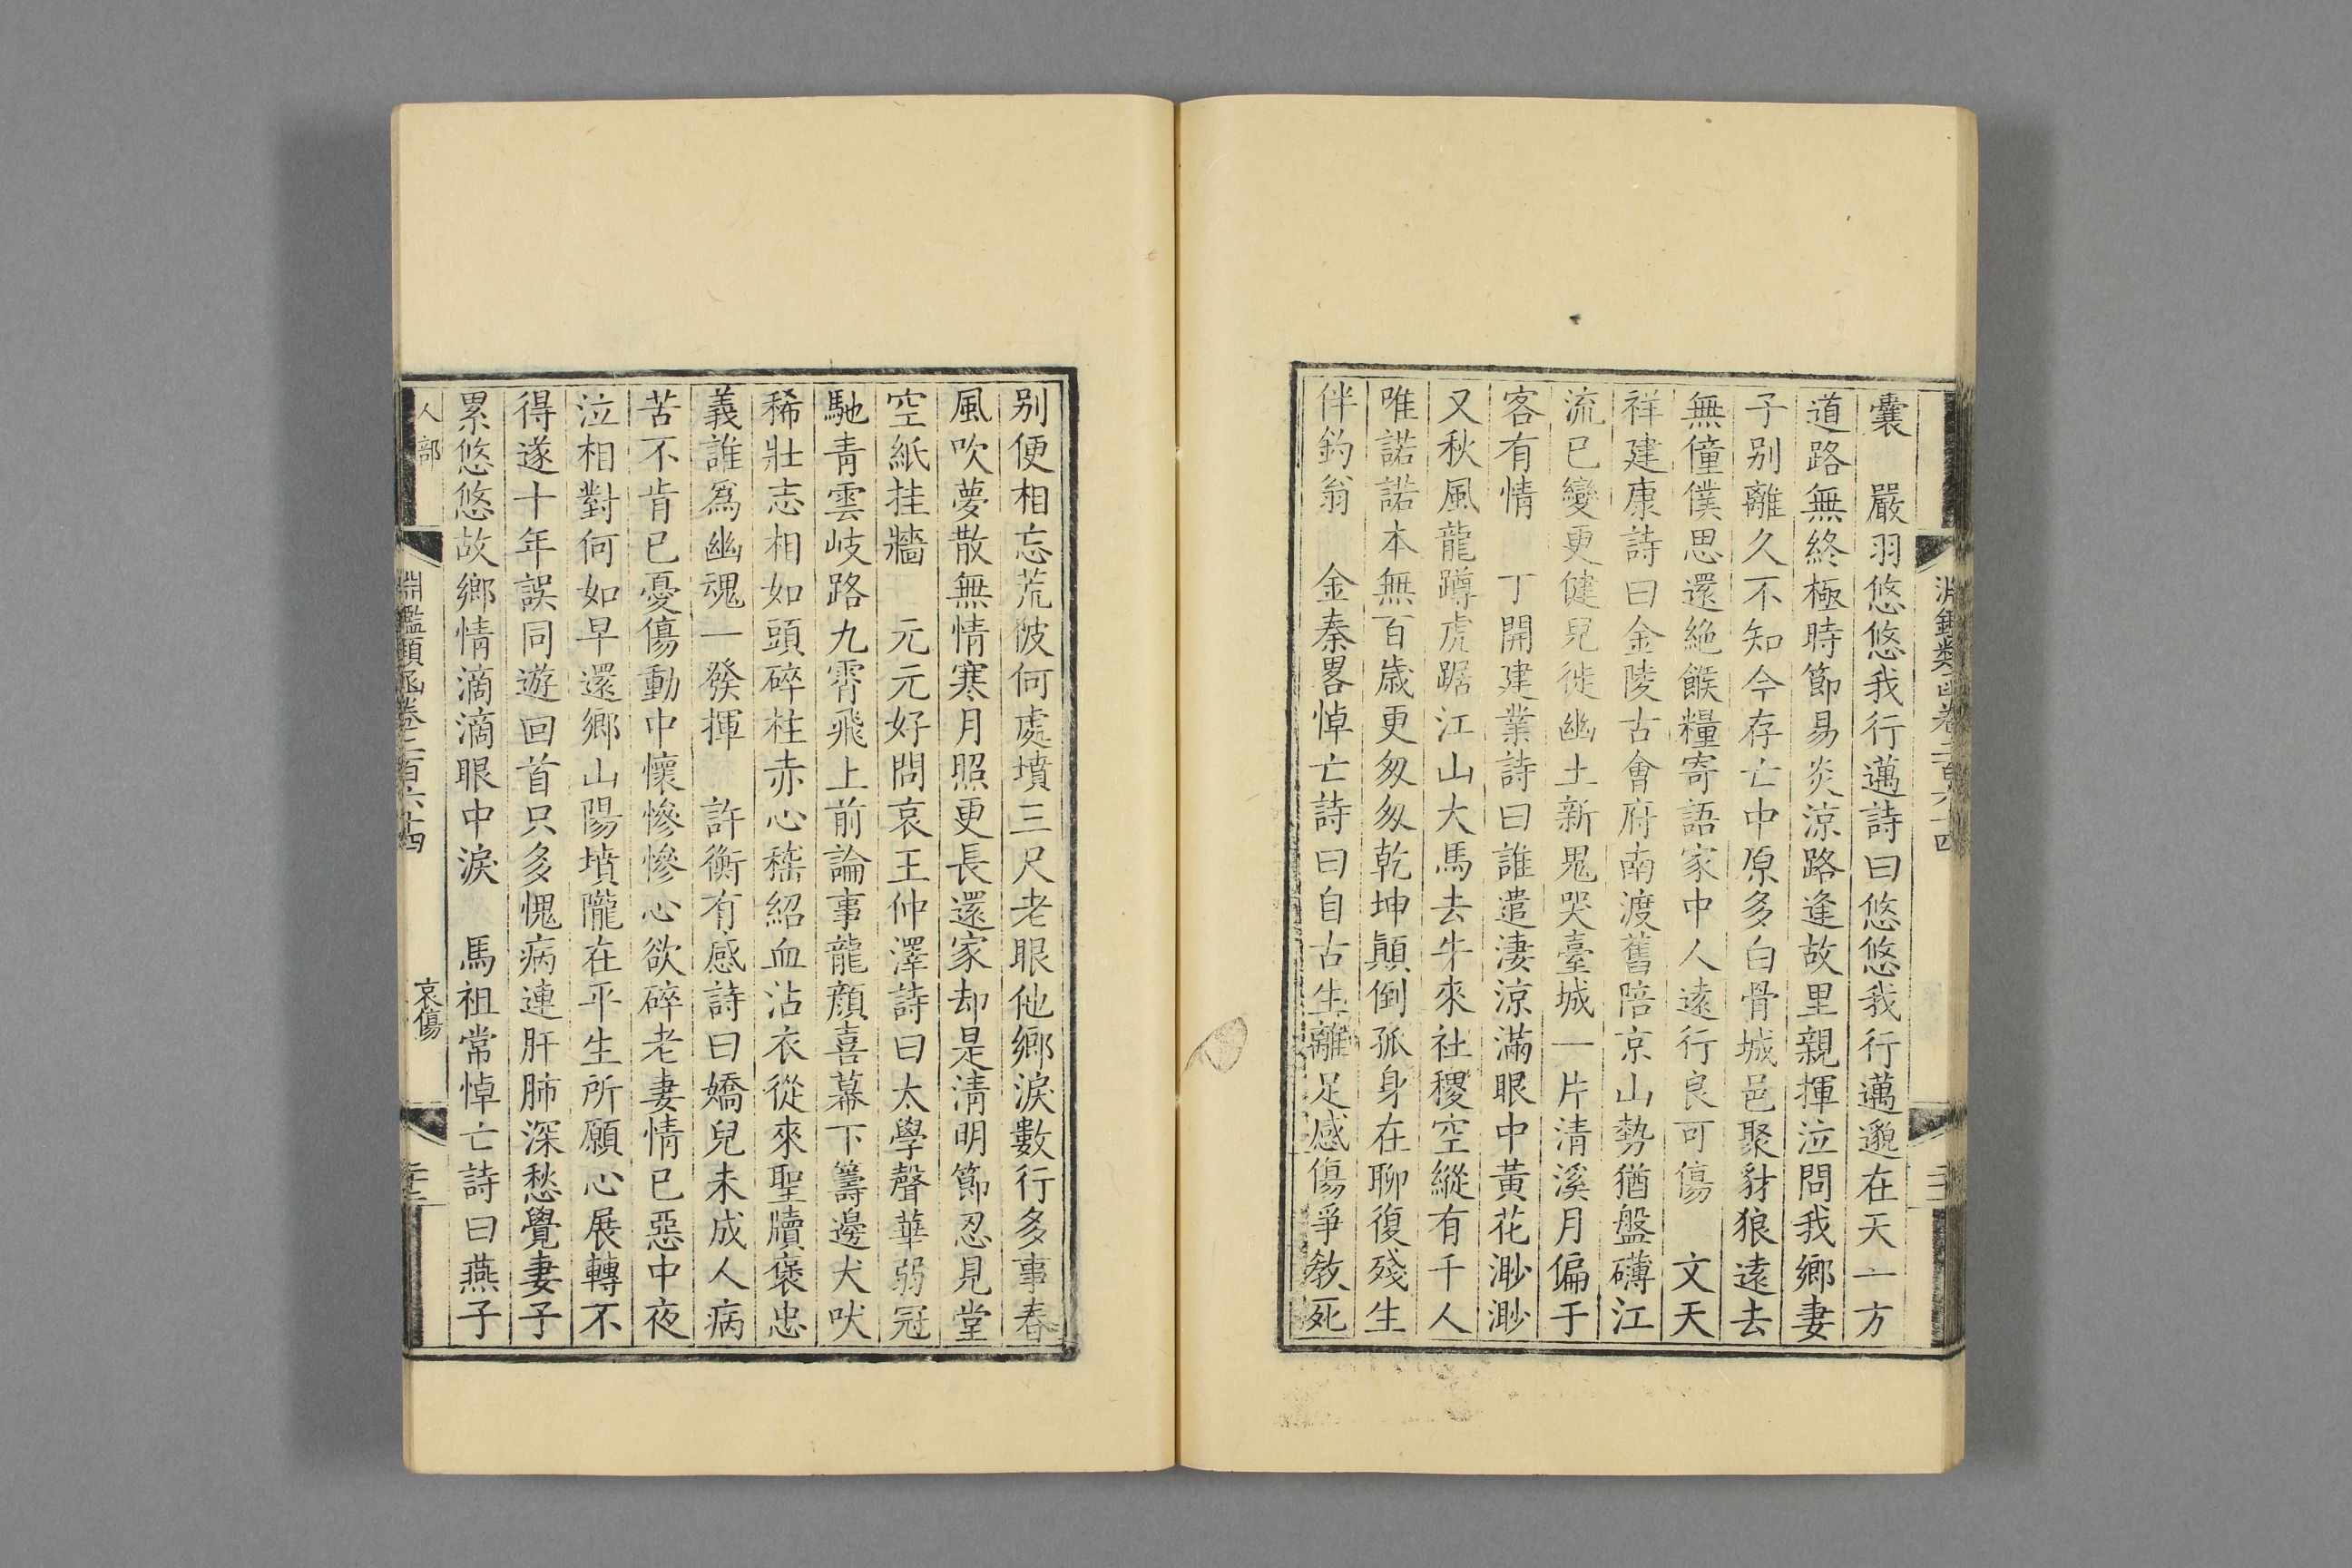 囊　嚴羽悠悠我行邁詩曰悠悠我行邁邈在天一方
道路無終極時節易炎涼路逢故里親揮泣問我鄉妻
子别離久不知今存亡中原多白骨城邑聚豺狼遠去
無僮僕思還絶餱糧寄語家中人遠行良可傷　文天
祥建康詩曰金陵古會府南渡舊陪京山勢猶盤礴江
流已變更健兒徙幽土新鬼哭臺城一片清溪月偏于
客有情　丁開建業詩曰誰遣淒涼滿眼中黃花渺渺
又秋風龍蹲虎踞江山大馬去牛來社稷空縱有千人
唯諾諾本無百歲更匆匆乾坤顛倒孤身在聊復殘生
伴釣翁　金秦畧悼亡詩曰自古生離足感傷爭敎死
别便相忘荒陂何處墳三尺老眼他鄉淚數行多事春
風吹夢散無情寒月照更長還家却是淸明節忍見堂
空紙挂牆　元元好問哀王仲澤詩曰太學聲華弱冠
馳靑雲岐路九霄飛上前論事龍顔喜幕下籌邊犬吠
稀壯志相如頭碎柱赤心嵇紹血沾衣從來聖牘褒忠
義誰爲幽魂一發揮　許衡有感詩曰嬌兒未成人病
苦不肯已憂傷動中懷慘慘心欲碎老妻情已惡中夜
泣相對何如早還鄉山陽墳隴在平生所願心展轉不
得遂十年誤同遊回首只多愧病連肝肺深愁覺妻子
累悠悠故鄉情滴滴眼中淚　馬祖常悼亡詩曰燕子
人部
淵鑑類函卷二百六十四
哀傷